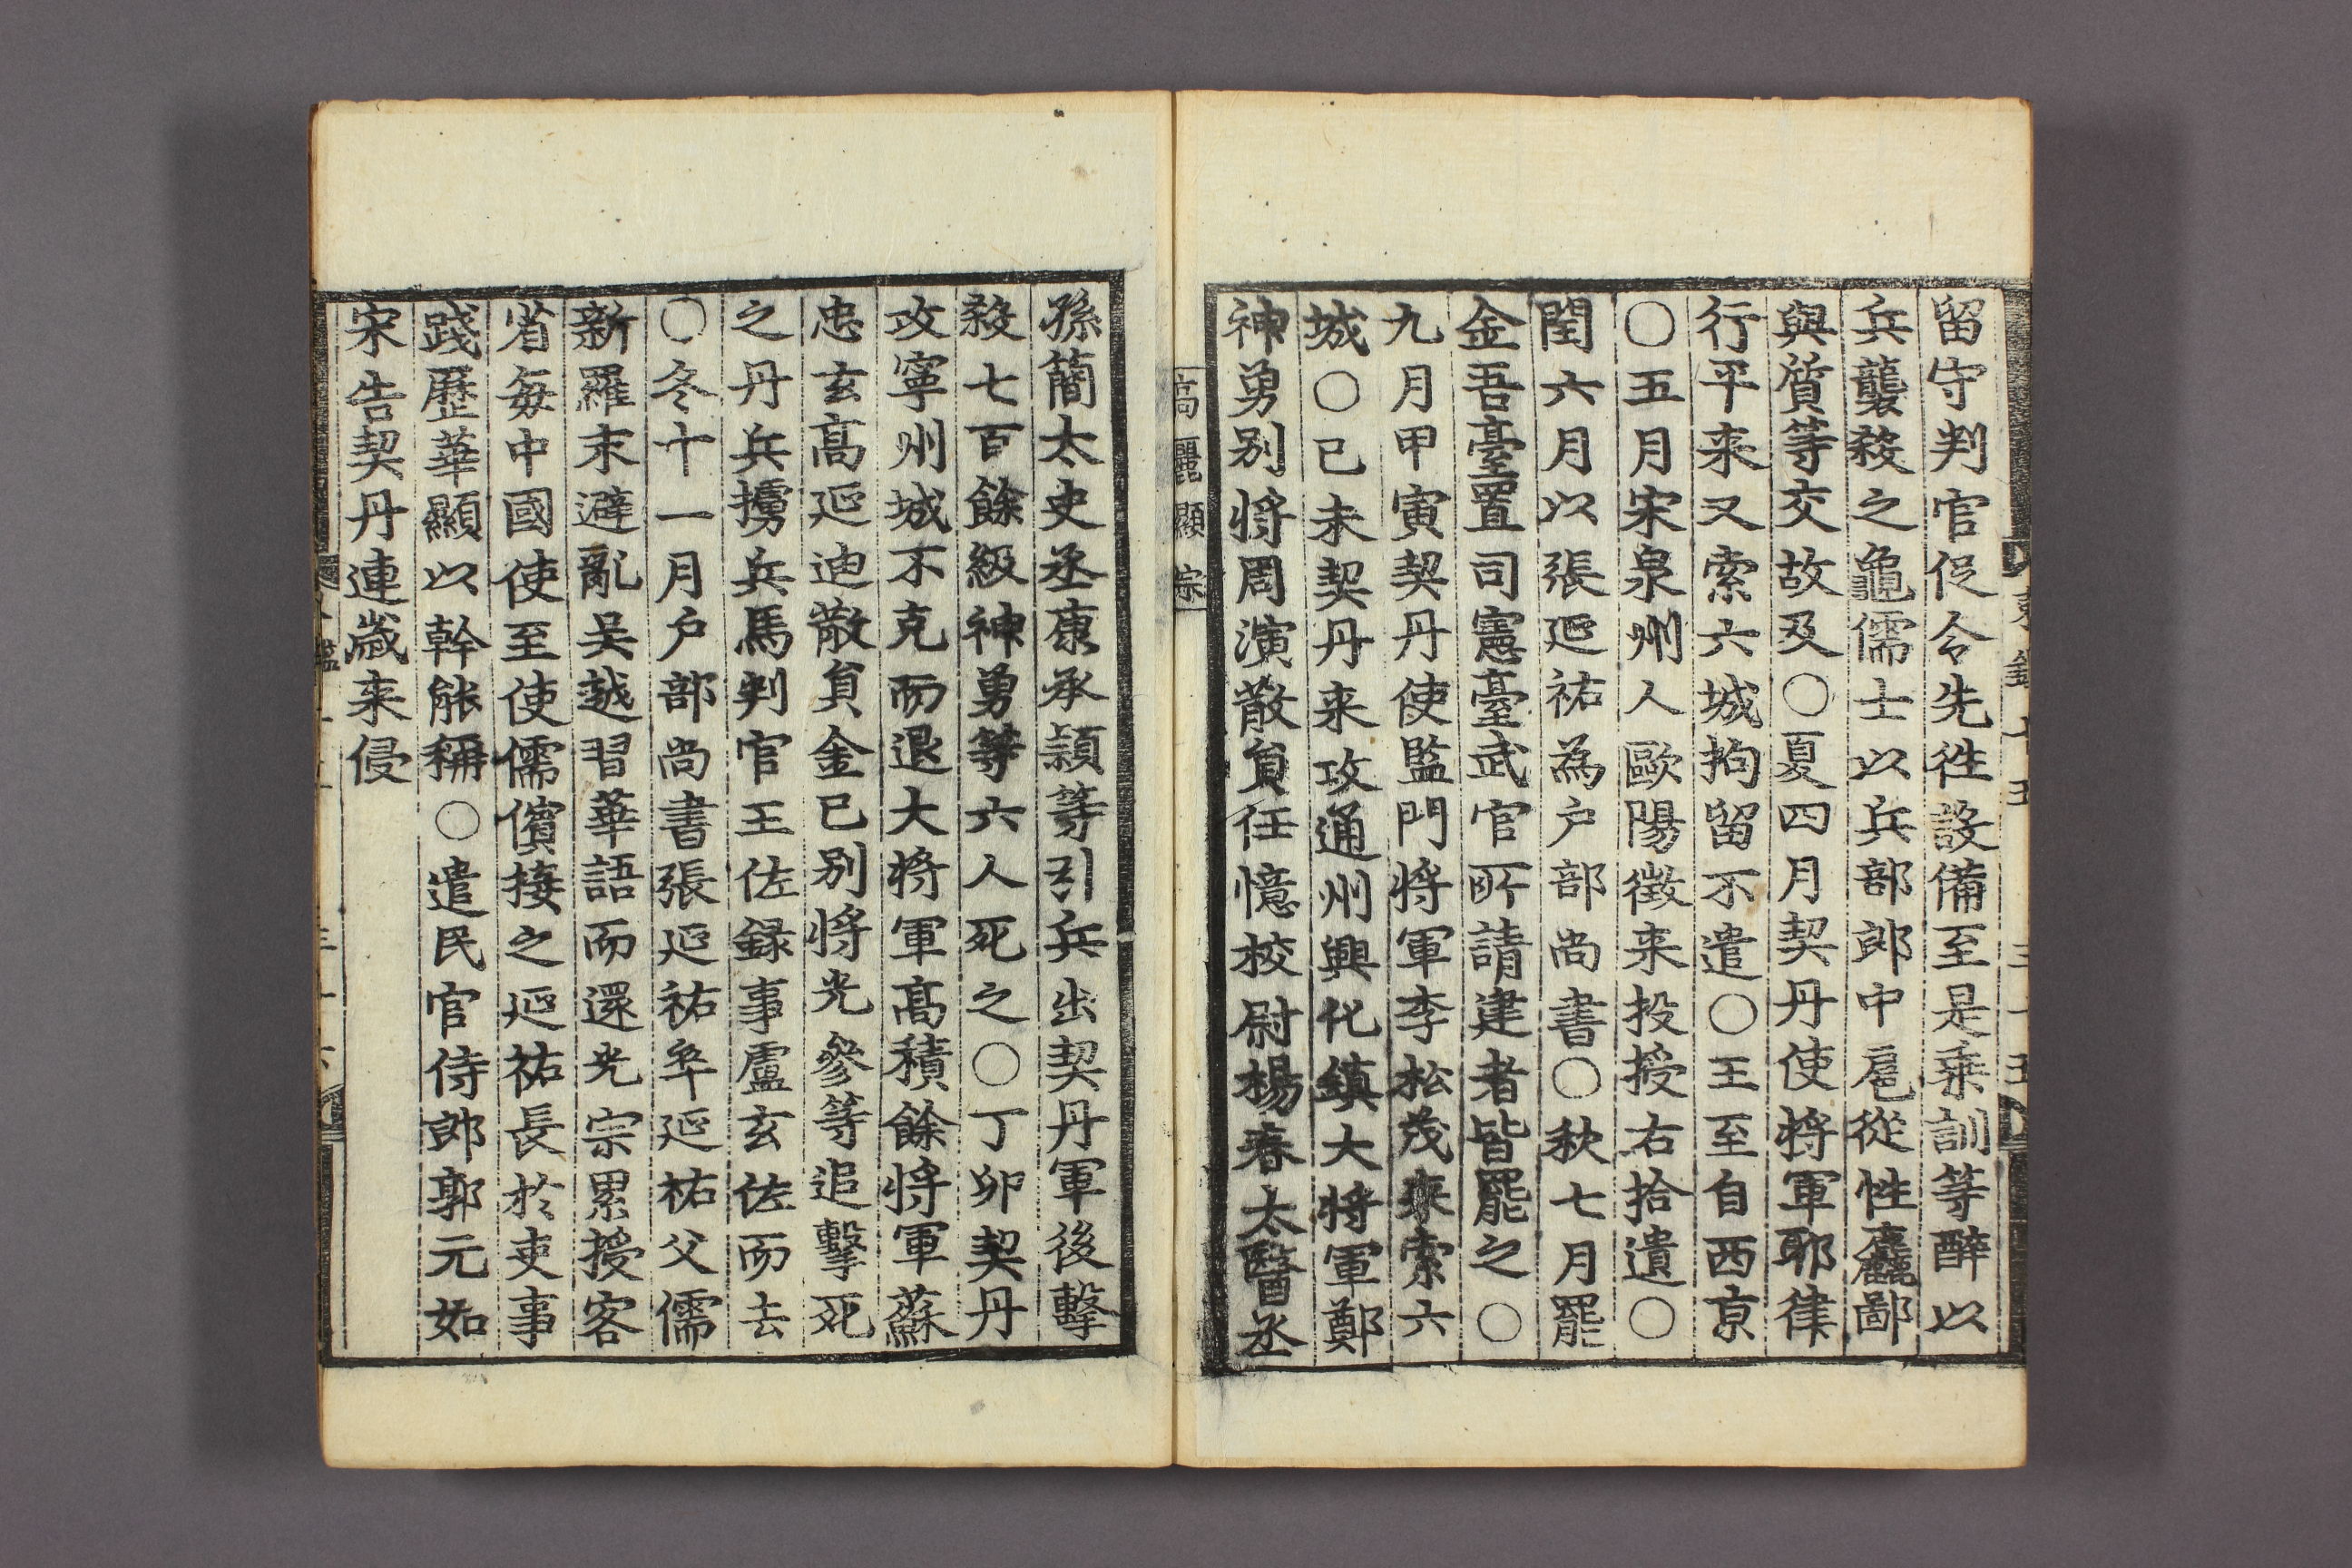 留守判官促令先徃設備至是乗訓等醉以
兵襲殺之龜儒士以兵部郎中扈從性麤鄙
與質等交故及〇夏四月契丹使将軍耶律
行平来又索六城拘留不遣〇王至自西京
〇五月宋泉州人歐陽徴来投授右拾遺〇
閏六月以張延祐為户部尚書〇秋七月罷
金吾臺置司憲臺武官所請建者皆罷之〇
九月甲寅契丹使監門将軍李松茂来索六
城〇已未契丹来攻通州興化鎮大将軍鄭
神勇别将周演散負任憶校尉楊春太醫丞
高麗顯宗
孫簡太史丞康承頴等引兵出契丹軍後擊
殺七百餘級神勇等六人死之〇丁卯契丹
攻寧州城不克而退大将軍髙積餘将軍蘇
忠玄髙延迪散負金已别将光參等追擊死
之丹兵擄兵馬判官王佐録事盧玄佐而去
〇冬十一月户部尚書張延祐卒延祐父儒
新羅末避亂吴越習華語而還光宗累授客
省毎中國使至使儒儐接之延祐長於吏事
踐歷華顯以幹能稱〇遣民官侍郎郭元如
宋告契丹連歲来侵